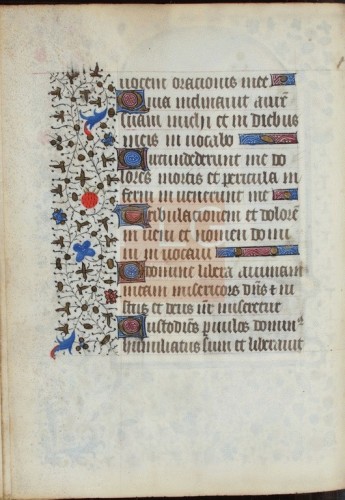 uocem oracionis mee
Quia inclinauit aurē
suam michi et in diebus
meis in uocabo
Circundederunt me do
lores mortis et pericula in
ferni in uenerunt me
Tribulacionem et dolorē
in ueni et nomen domi
ni in uocaui
Domine libera animam
meam misericors dn̄s et iu
stus et deus nr̄ miseretur
Custodiens paruulos domin⁹
humiliatus sum et liberauit